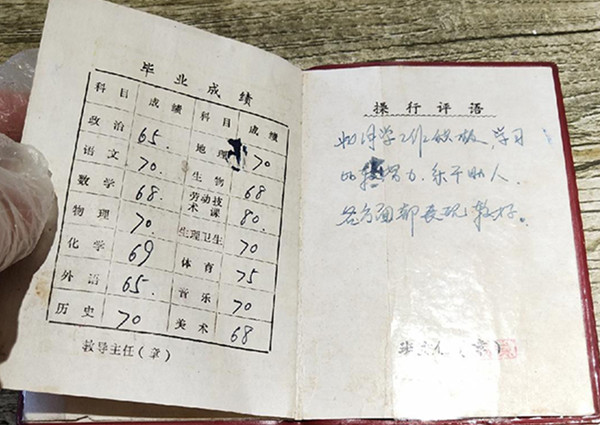 毕业成绩
科目 成绩 科目 成绩
政治 65. 地理 70
语文 70. 生物 68
数学 68. 劳动技术课 80.
物理 70 生理卫生 70
化学 69 体育 75
外语 65. 音乐 70
历史 70 美术 68
教导主任(章)
操行评语
学习
比较努力.乐于助人.
各方面都表现较好。
(章)